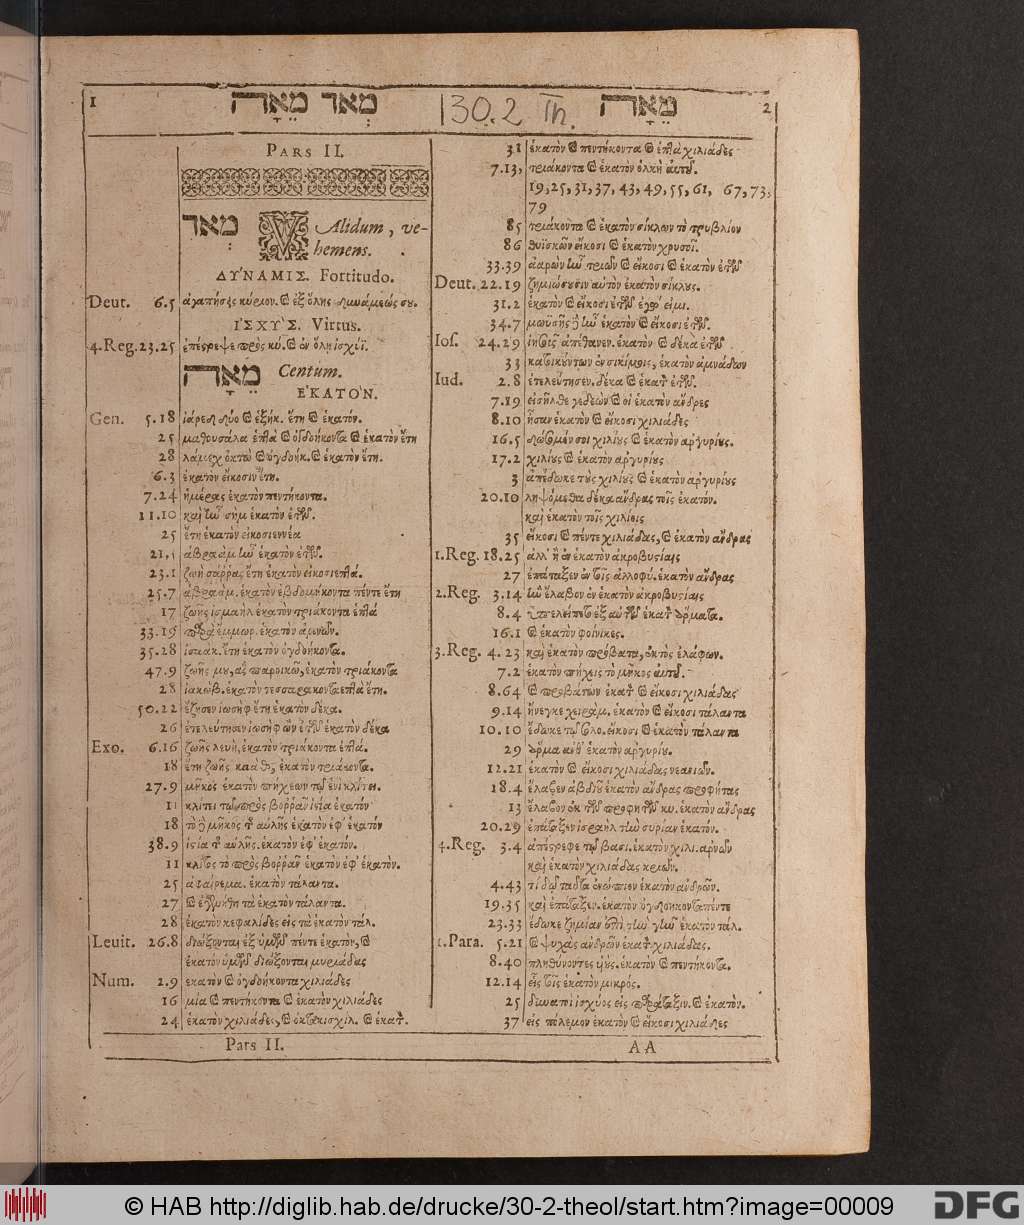 1 מְאֹד מֵאָה 30.2 Th. מֵאָה 2
PARS II.
מְאֹד VAlidum, ve-
hemens.
ΔΎΝΑΜΙΣ. Fortitudo.
Deut. 6.5 ἀγαπήσεις κύριον. καὶ ἐξ ὅλης δυνάμεώς σου.
ἸΣΧῪΣ. Virtus.
4.Reg.23.25 ἐπέστρεψε πρὸς κυ. καὶ ἐν ὅλῃ ἰσχύϊ.
מֵאָה Centum.
ἙΚΑΤῸΝ.
Gen. 5.18 ἰάρεδ δύο καὶ ἑξήκ. ἔτη καὶ ἑκατόν.
25 μαθουσάλα ἑπτὰ καὶ ὀγδοήκοντα καὶ ἑκατὸν ἔτη
28 λάμεχ ὀκτὼ καὶ ὀγδοήκ. καὶ ἑκατὸν ἔτη.
6.3 ἑκατὸν εἴκοσιν ἔτη.
7.24 ἡμέρας ἑκατὸν πεντήκοντα.
11.10 καὶ ἦν σὴμ ἑκατὸν ἐτῶν.
25 ἔτη ἑκατὸν εἰκοσιεννέα
21,5 ἀβραὰμ ἦν ἑκατὸν ἐτῶν.
23.1 ζωὴ σάρρας ἔτη ἑκατὸν εἰκοσιεπτά.
25.7 ἀβραὰμ. ἑκατὸν ἑβδομήκοντα πέντε ἔτη
17 ζωῆς ἰσμαὴλ ἑκατὸν τριάκοντα ἑπτά
33.19 παρὰ ἐμμωρ. ἑκατὸν ἀμνῶν.
35.28 ἰσαάκ. ἔτη ἑκατὸν ὀγδοήκοντα.
47.9 ζωῆς μου, ἃς παροικῶ, ἑκατὸν τριάκοντα
28 ἰακώβ. ἑκατὸν τεσσαρακονταεπτὰ ἔτη.
50.22 ἔζησεν ἰωσὴφ ἔτη ἑκατὸν δέκα.
26 ἐτελεύτησεν ἰωσὴφ ὢν ἐτῶν ἑκατὸν δέκα
Exo. 6.16 ζωῆς λευὴ, ἑκατὸν τριάκοντα ἑπτά.
18 ἔτη ζωῆς καὰθ, ἑκατὸν τριάκοντα.
27.9 μῆκος ἑκατὸν πήχεων τῷ ἑνὶ κλίτει.
11 κλίτει τῷ πρὸς βορρᾶν ἱστία ἑκατόν
18 τὸ δὲ μῆκος τῆς αὐλῆς ἑκατὸν ἐφ' ἑκατόν
38.9 ἱστία τῆς αὐλῆς. ἑκατὸν ἐφ' ἑκατόν.
11 κλίτος τὸ πρὸς βορρᾶν ἑκατὸν ἐφ' ἑκατόν.
25 ἀφαίρεμα. ἑκατὸν τάλαντα.
27 καὶ ἐγενήθη τὰ ἑκατὸν τάλαντα.
28 ἑκατὸν κεφαλίδες εἰς τὰ ἑκατὸν τάλ.
Leuit. 26.8 διώξονται ἐξ ὑμῶν πέντε ἑκατὸν, καὶ
ἑκατὸν ὑμῶν διώξονται μυριάδας
Num. 2.9 ἑκατὸν καὶ ὀγδοήκοντα χιλιάδες
16 μία καὶ πεντήκοντα καὶ ἑκατὸν χιλιάδες
24 ἑκατὸν χιλιάδες, καὶ ὀκτακισχίλ. καὶ ἑκατ.
Pars II.
31 ἑκατὸν καὶ πεντήκοντα καὶ ἑπτὰ χιλιάδες
7.13, τριάκοντα καὶ ἑκατὸν ὁλκὴ αὐτοῦ.
19, 25, 31, 37, 43, 49, 55, 61, 67, 73,
79
85 τριάκοντα καὶ ἑκατὸν σίκλων τὸ τρυβλίον
86 θυϊσκῶν εἴκοσι καὶ ἑκατὸν χρυσοῖ.
33.39 ἀαρὼν ἦν τριῶν καὶ εἴκοσι καὶ ἑκατὸν ἐτῶν
Deut. 22.19 ζημιώσουσιν αὐτὸν ἑκατὸν σίκλους.
31.2 ἑκατὸν καὶ εἴκοσι ἐτῶν ἐγώ εἰμι.
34.7 μωϋσῆς δὲ ἦν ἑκατὸν καὶ εἴκοσι ἐτῶν.
Ios. 24.29 ἰησοῦς ἀπέθανεν. ἑκατὸν καὶ δέκα ἐτῶν
33 κατοικούντων ἐν σικίμοις, ἑκατὸν ἀμνάδων
Iud. 2.8 ἐτελεύτησεν. δέκα καὶ ἑκατ. ἐτῶν.
7.19 εἰσῆλθε γεδεὼν καὶ οἱ ἑκατὸν ἄνδρες
8.10 ἦσαν ἑκατὸν καὶ εἴκοσι χιλιάδες
16.5 δώσομέν σοι χιλίους καὶ ἑκατὸν ἀργυρίους.
17.2 χιλίους καὶ ἑκατὸν ἀργυρίους
3 ἀπέδωκε τοὺς χιλίους καὶ ἑκατὸν ἀργυρίους
20.10 ληψόμεθα δέκα ἄνδρας τοῖς ἑκατόν.
καὶ ἑκατὸν τοῖς χιλίοις
35 εἴκοσι καὶ πέντε χιλιάδας, καὶ ἑκατὸν ἄνδρας
1.Reg. 18.25 ἀλλ' ἢ ἐν ἑκατὸν ἀκροβυστίαις
27 ἐπάταξεν ἐν τοῖς ἀλλοφύ. ἑκατὸν ἄνδρας
2.Reg. 3.14 ἣν ἔλαβον ἐν ἑκατὸν ἀκροβυστίαις
8.4 ὑπελείπετο ἐξ αὐτῶν ἑκατ. ἅρματα.
16.1 καὶ ἑκατὸν φοίνικες.
3.Reg. 4.23 καὶ ἑκατὸν πρόβατα, ἐκτὸς ἐλάφων.
7.2 ἑκατὸν πήχεις τὸ μῆκος αὐτοῦ.
8.64 καὶ προβάτων ἑκατ. καὶ εἴκοσι χιλιάδας
9.14 ἤνεγκε χειρὰμ. ἑκατὸν καὶ εἴκοσι τάλαντα
10.10 ἔδωκε τῷ σολο. εἴκοσι καὶ ἑκατὸν τάλαντα
29 ἅρμα ἀντὶ ἑκατὸν ἀργυρίου.
12.21 ἑκατὸν καὶ εἴκοσι χιλιάδας νεανιῶν.
18.4 ἔλαβεν ἀβδιοὺ ἑκατὸν ἄνδρας προφήτας
13 ἔλαβον ἐκ τῶν προφητῶν κυ. ἑκατὸν ἄνδρας
20.29 ἐπάταξεν ἰσραὴλ τὴν συρίαν ἑκατόν.
4.Reg. 3.4 ἀπέστρεφε τῷ βασι. ἑκατὸν χιλι. ἀρνῶν
καὶ ἑκατὸν χιλιάδας κριῶν.
4.43 τί δῶ ταῦτα ἐνώπιον ἑκατὸν ἀνδρῶν.
19.35 καὶ ἐπάταξεν. ἑκατὸν ὀγδοηκονταπέντε
23.33 ἔδωκε ζημίαν ἐπὶ τὴν γῆν ἑκατὸν τάλ.
1.Para. 5.21 καὶ ψυχὰς ἀνδρῶν ἑκατ. χιλιάδας.
8.40 πληθύνοντες υἱούς. ἑκατὸν καὶ πεντήκοντα.
12.14 εἷς τοῖς ἑκατὸν μικρός.
25 δυνατοὶ ἰσχύος εἰς παράταξιν. καὶ ἑκατόν.
37 εἰς πόλεμον ἑκατὸν καὶ εἴκοσι χιλιάδες
AA
© HAB http://diglib.hab.de/drucke/30-2-theol/start.htm?image=00009
DFG